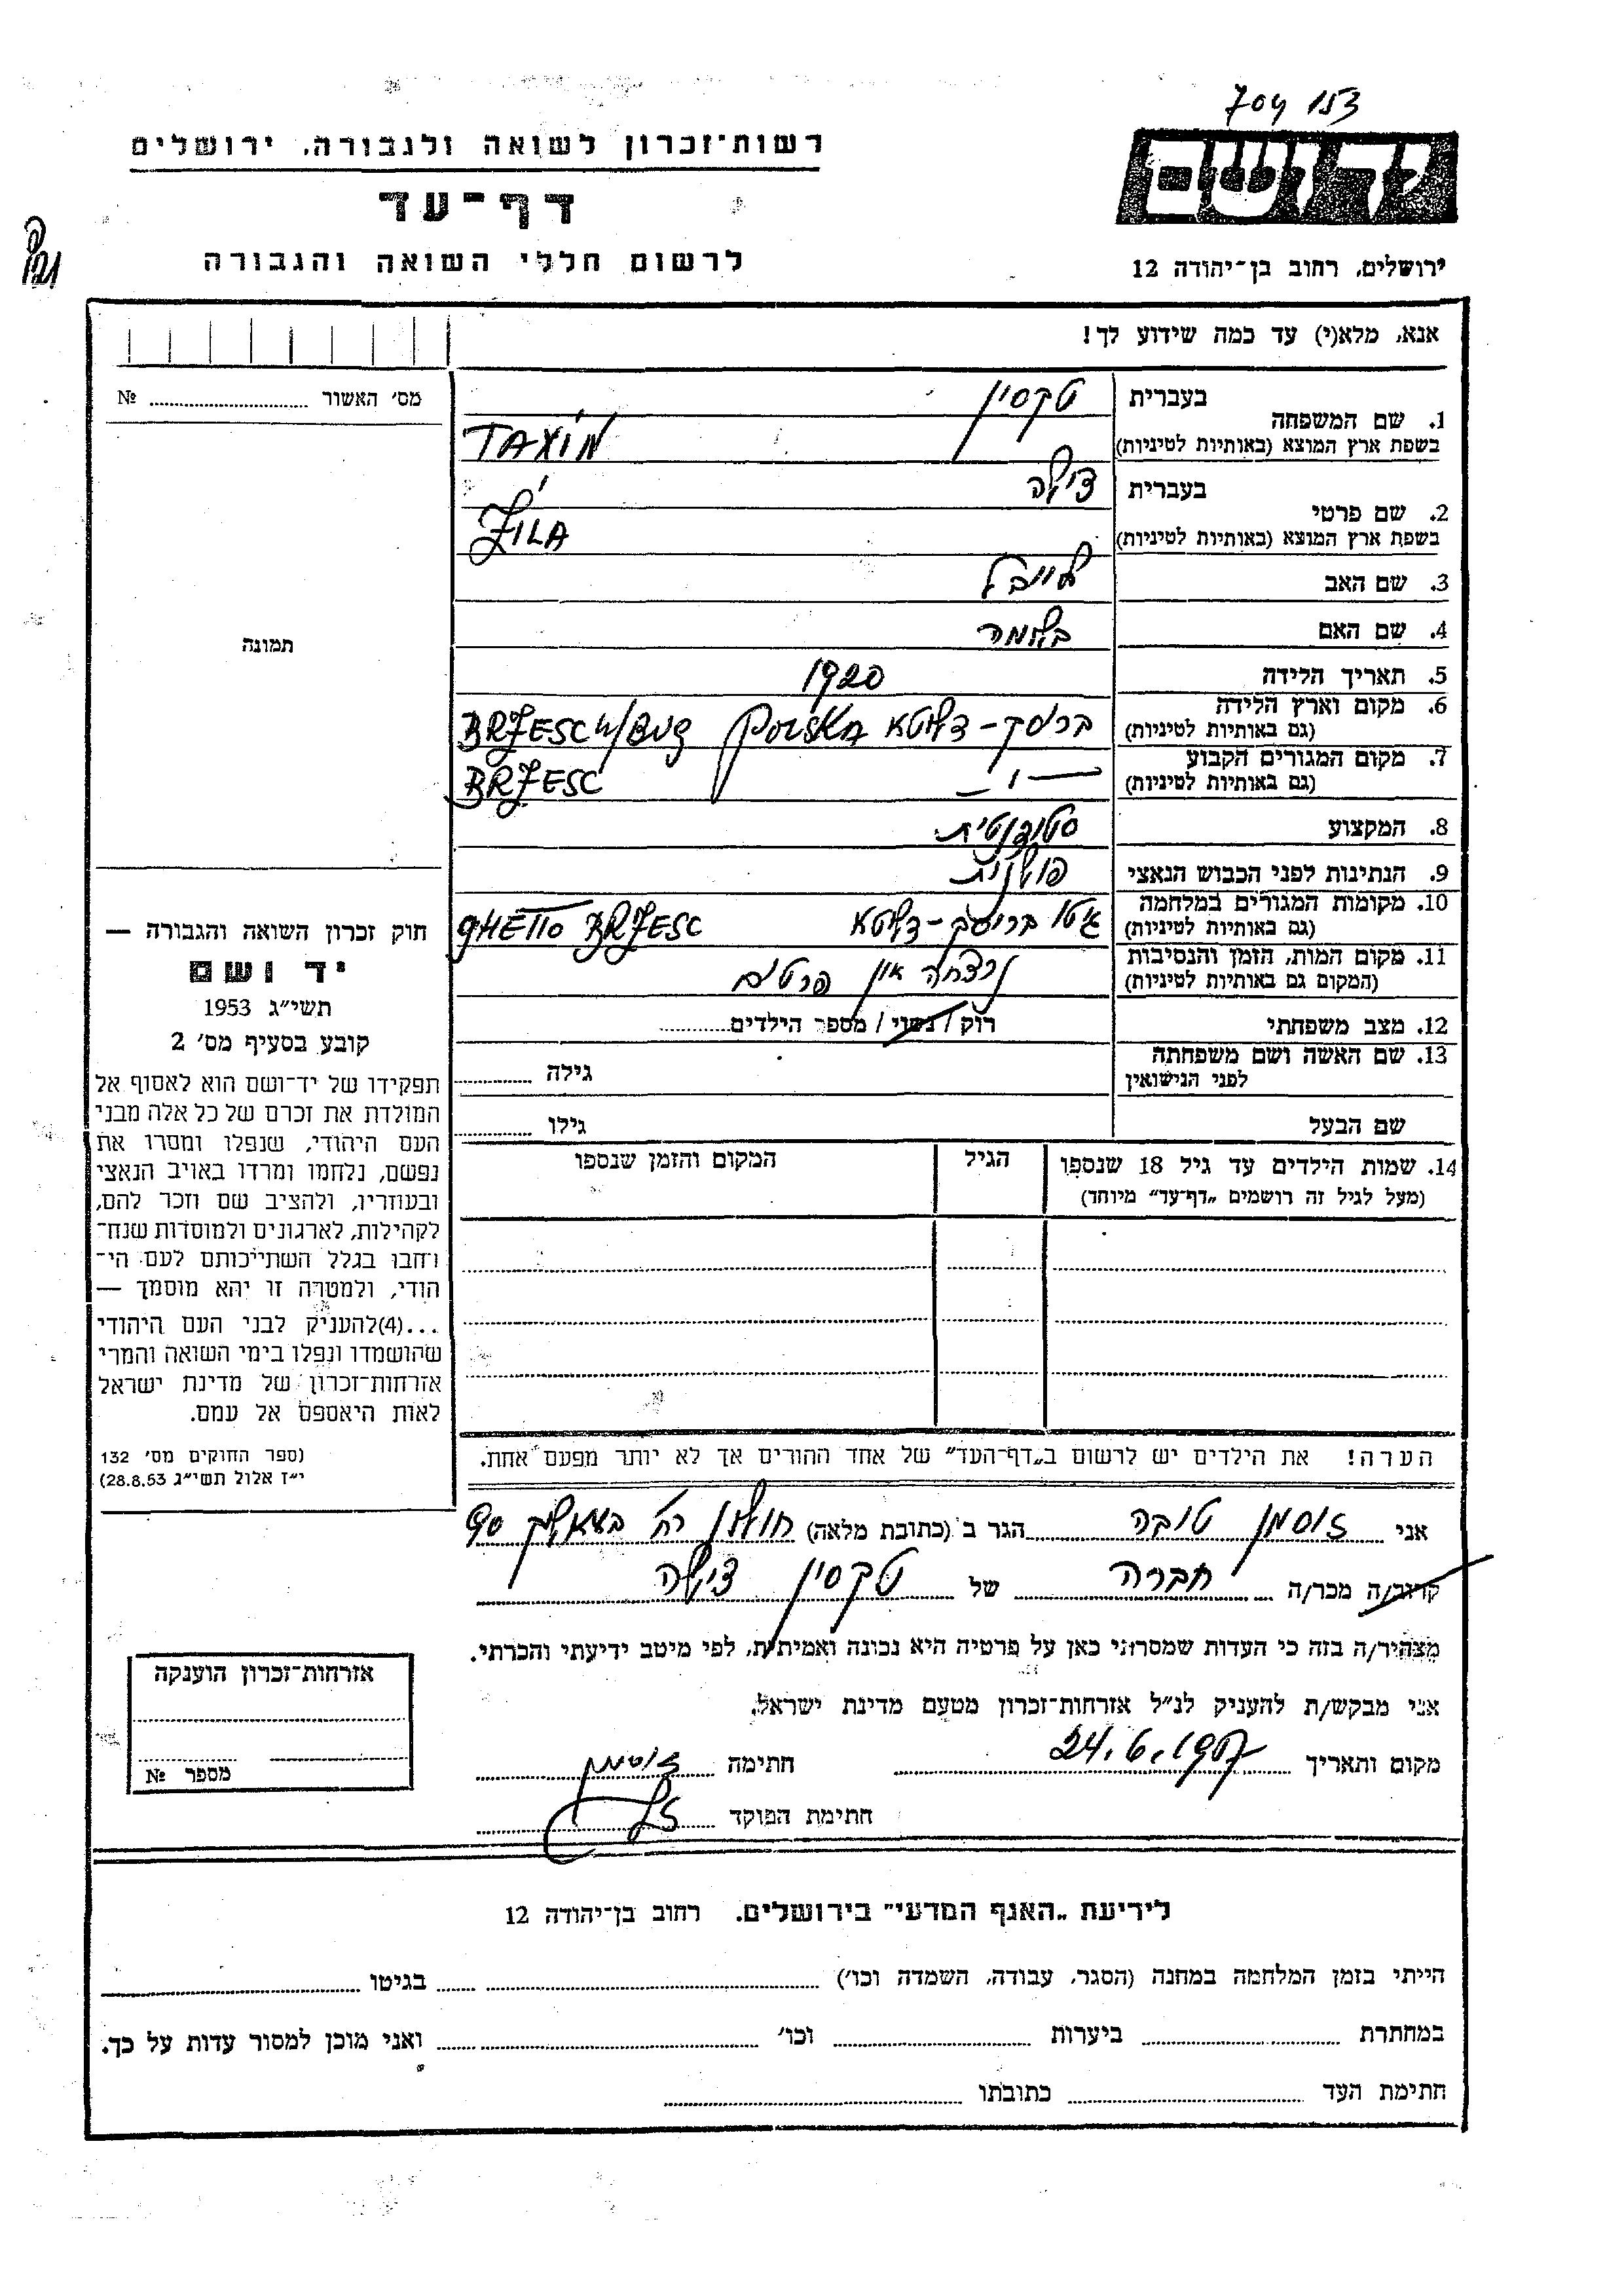 704 153
רשות־זכרון לשואה ולגבורה, ירושלים
יד ושם
דף־עד
לרשום חללי השואה והגבורה
ירושלים, רחוב בן־יהודה 12
אנא, מלא(י) עד כמה שידוע לך!
מס׳ האשור № 
1. שם המשפחה
בעברית טקסין
בשפת ארץ המוצא (באותיות לטיניות) TAXIN
2. שם פרטי
בעברית צילה
בשפת ארץ המוצא (באותיות לטיניות) ZILA
3. שם האב לייבל
4. שם האם
תמונה
5. תאריך הלידה 1920
6. מקום וארץ הלידה בריסק-דליטא POLSKA BRZESC n/BUG
(גם באותיות לטיניות)
7. מקום המגורים הקבוע —״— BRZESC
(גם באותיות לטיניות)
8. המקצוע סטודנטית
9. הנתינות לפני הכבוש הנאצי פולנית
10. מקומות המגורים במלחמה גיטו בריסק-דליטא GHETTO BRZESC
(גם באותיות לטיניות)
11. מקום המות, הזמן והנסיבות נרצחה אין פרטים
(המקום גם באותיות לטיניות)
12. מצב משפחתי רוק / נשוי / מספר הילדים
13. שם האשה ושם משפחתה גילה
לפני הנישואין
שם הבעל גילו
חוק זכרון השואה והגבורה —
יד ושם
תשי״ג 1953
קובע בסעיף מס׳ 2
תפקידו של יד־ושם הוא לאסוף אל
המולדת את זכרם של כל אלה מבני
העם היהודי, שנפלו ומסרו את
נפשם, נלחמו ומרדו באויב הנאצי
ובעוזריו, ולהציב שם וזכר להם,
לקהילות, לארגונים ולמוסדות שנח־
רחבו בגלל השתייכותם לעם הי־
הודי, ולמטרה זו יהא מוסמך —
...(4)להעניק לבני העם היהודי
שהושמדו ונפלו בימי השואה והמרי
אזרחות־זכרון של מדינת ישראל
לאות היאספם אל עמם.
(ספר החוקים מס׳ 132
י״ז אלול תשי״ג 28.8.53)
14. שמות הילדים עד גיל 18 שנספו הגיל המקום והזמן שנספו
(מעל לגיל זה רושמים „דף־עד״ מיוחד)
הערה! את הילדים יש לרשום ב„דף־העד״ של אחד ההורים אך לא יותר מפעם אחת.
אני זוסמן טובה הגר ב (כתובת מלאה) חולון רח׳
קרוב/ה מכר/ה חברה של טקסין צילה
מצהיר/ה בזה כי העדות שמסרתי כאן על פרטיה היא נכונה ואמיתית, לפי מיטב ידיעתי והכרתי.
אני מבקש/ת להעניק לנ״ל אזרחות־זכרון מטעם מדינת ישראל.
מקום ותאריך 24.6.1957 חתימה זוסמן
חתימת הפוקד
אזרחות־זכרון הוענקה
מספר №
לידיעת „האגף המדעי״ בירושלים. רחוב בן־יהודה 12
הייתי בזמן המלחמה במחנה (הסגר, עבודה, השמדה וכו׳) בגיטו
במחתרת ביערות וכו׳ ואני מוכן למסור עדות על כך.
חתימת העד כתובתו